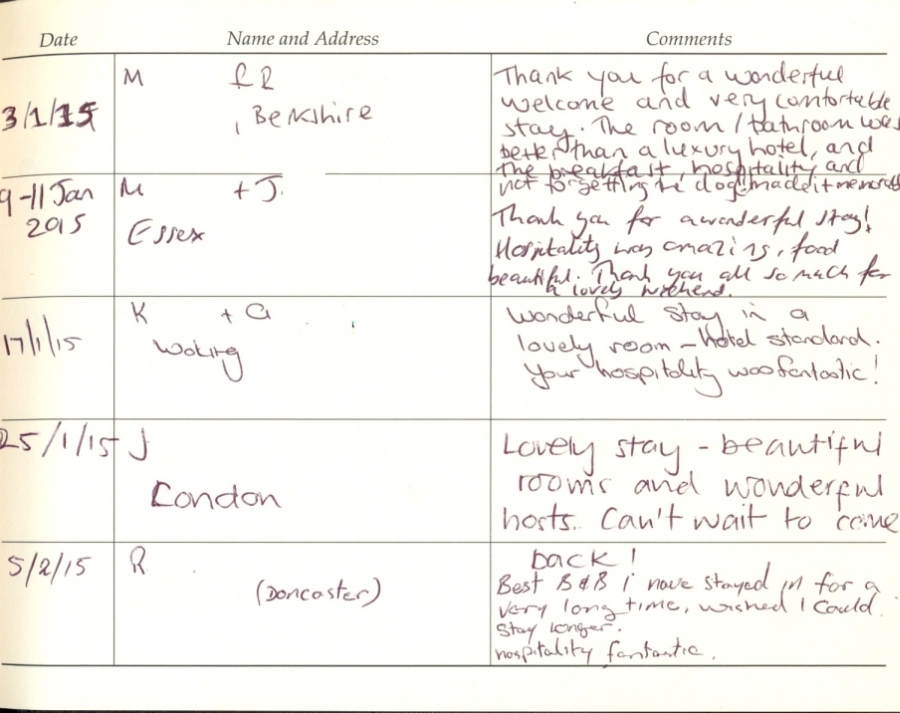 Date Name and Address Comments
3/1/15 M & R
, Berkshire
Thank you for a wonderful
welcome and very comfortable
stay. The room / bathroom was
better than a luxury hotel, and
the breakfast, hospitality and
not forgetting the dog! made it memorable
9-11 Jan
2015
M + J.
Essex
Thank you for a wonderful stay!
Hospitality was amazing, food
beautiful. Thank you all so much for
a lovely weekend.
17/1/15
K + G
Woking
Wonderful stay in a
lovely room - hotel standard.
Your hospitality was fantastic!
25/1/15
J
London
Lovely stay - beautiful
rooms and wonderful
hosts. Can't wait to come
back!
5/2/15
R
(Doncaster)
Best B & B i have stayed in for a
very long time, wished I could
stay longer.
hospitality fantastic.